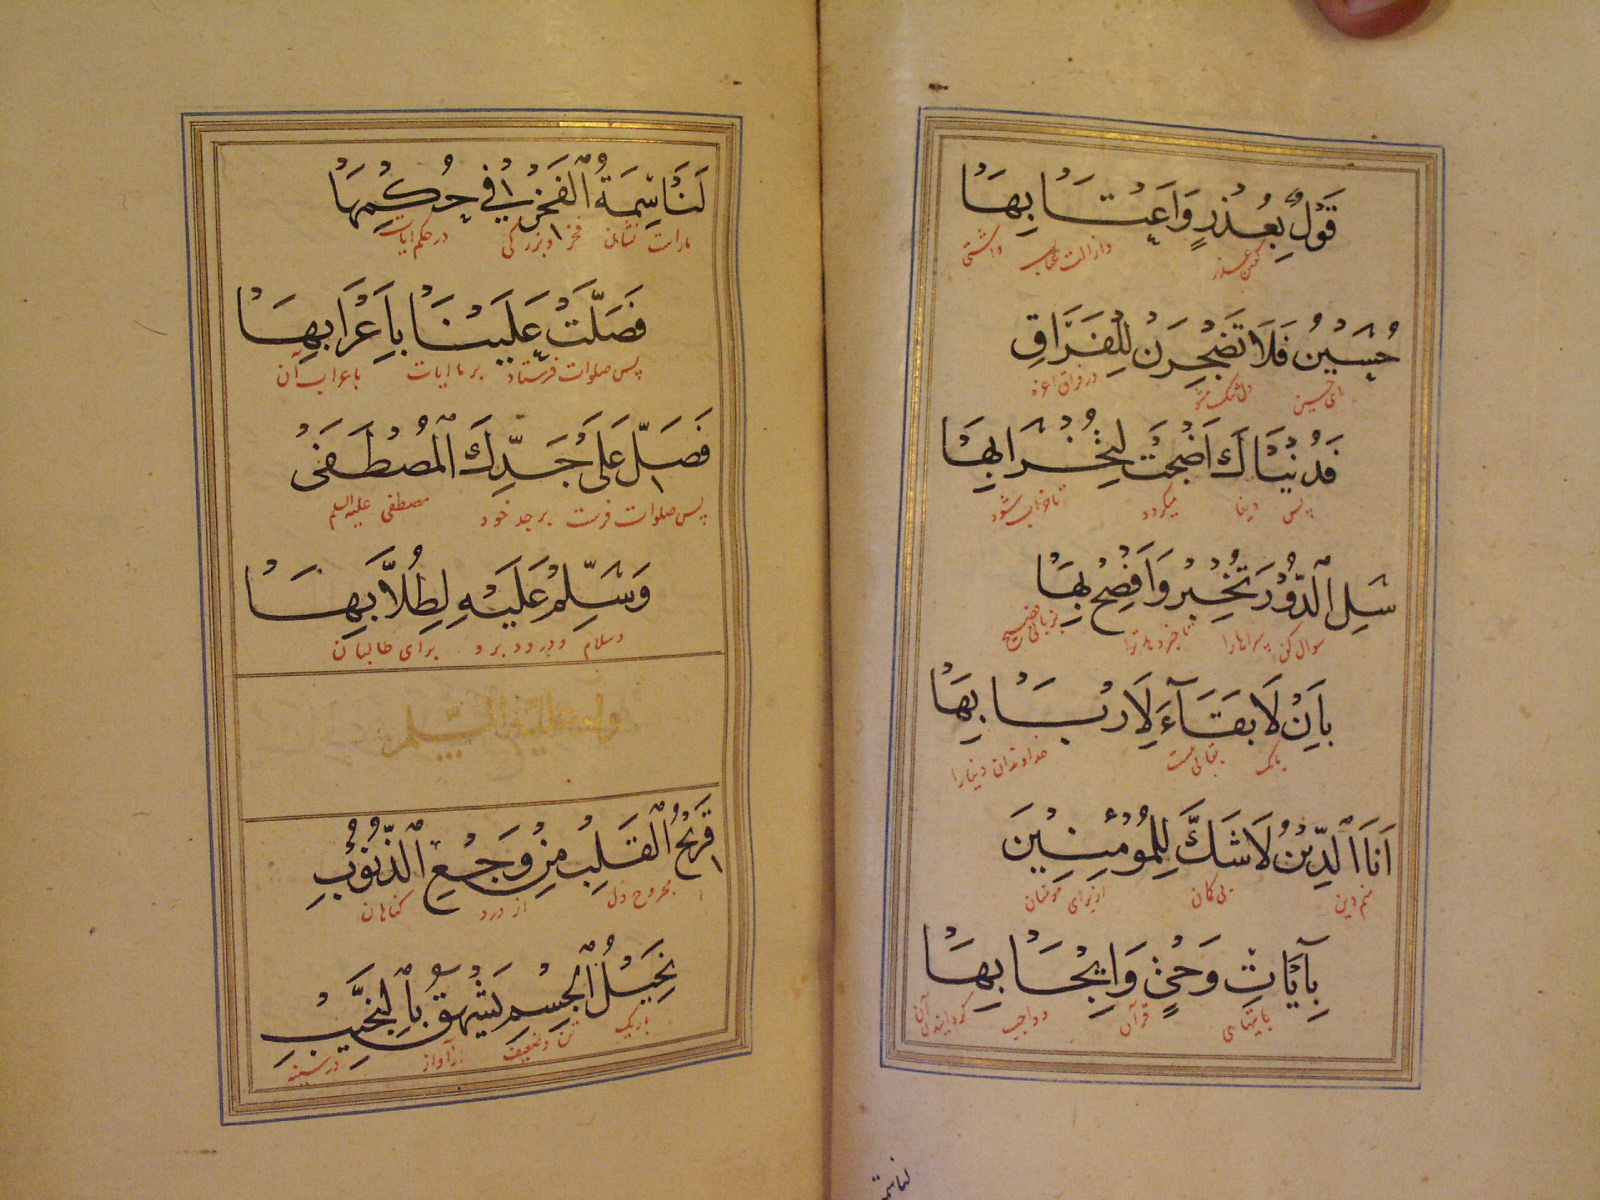 قَوْلٌ بِعُذْرٍ وَاَعْتَابِهَا
گفتن عذر وازالت عتاب واشتی
حُسَيْنُ فَلَا تَضْجَرَنْ لِلْفِرَاقِ
ای حسین دل تنگ مشو در فراق اعزه
فَدُنْيَاكَ اَضْحَتْ لِتَخْرَابِهَا
پس دنیا میکردد تاخراب شود
سَلِ الدُّوْرَ تُخْبِرْ وَاَفْصِحْ بِهَا
سوال کن سراها را تا خبر دهد ترا بزبانی فصیح
بِاَنْ لَا بَقَآءَ لِاَرْبَابِهَا
بانک بقائی نیست خداوندان دنیارا
اَنَا الدِّيْنُ لَاشَكَّ لِلْمُؤْمِنِيْنَ
منم دین بی کمان از برای مومنان
بِآيَاتِ وَحْيٍ وَاِيْجَابِهَا
قرآن وواجب کردانیدن آن
لنا سمة
لَنَا سِمَةُ الْفَخْرِ فِي حُكْمِهَا
ماراست نشان فخر وبزرکی در حکم ایات
فَصَلَّتْ عَلَيْنَا بِاِعْرَابِهَا
پس صلوات فرستاد بر ما ایات باعراب آن
فَصَلِّ عَلَى جَدِّكَ الْمُصْطَفٰى
پس صلوات فرست بر جد خود مصطفی علیه السلم
وَسَلِّمْ عَلَيْهِ لِطُلَّابِهَا
وسلام ودرود برو برای طالبان
وله عليه السلم
قَرِيْحُ الْقَلْبِ مِنْ وَجَعِ الذُّنُوْبِ
مجروح دل از درد کناهان
نَحِيْلُ الْجِسْمِ يَشْهَقُ بِالنَّحِيْبِ
باریک تن وضعیف از آواز در سینه